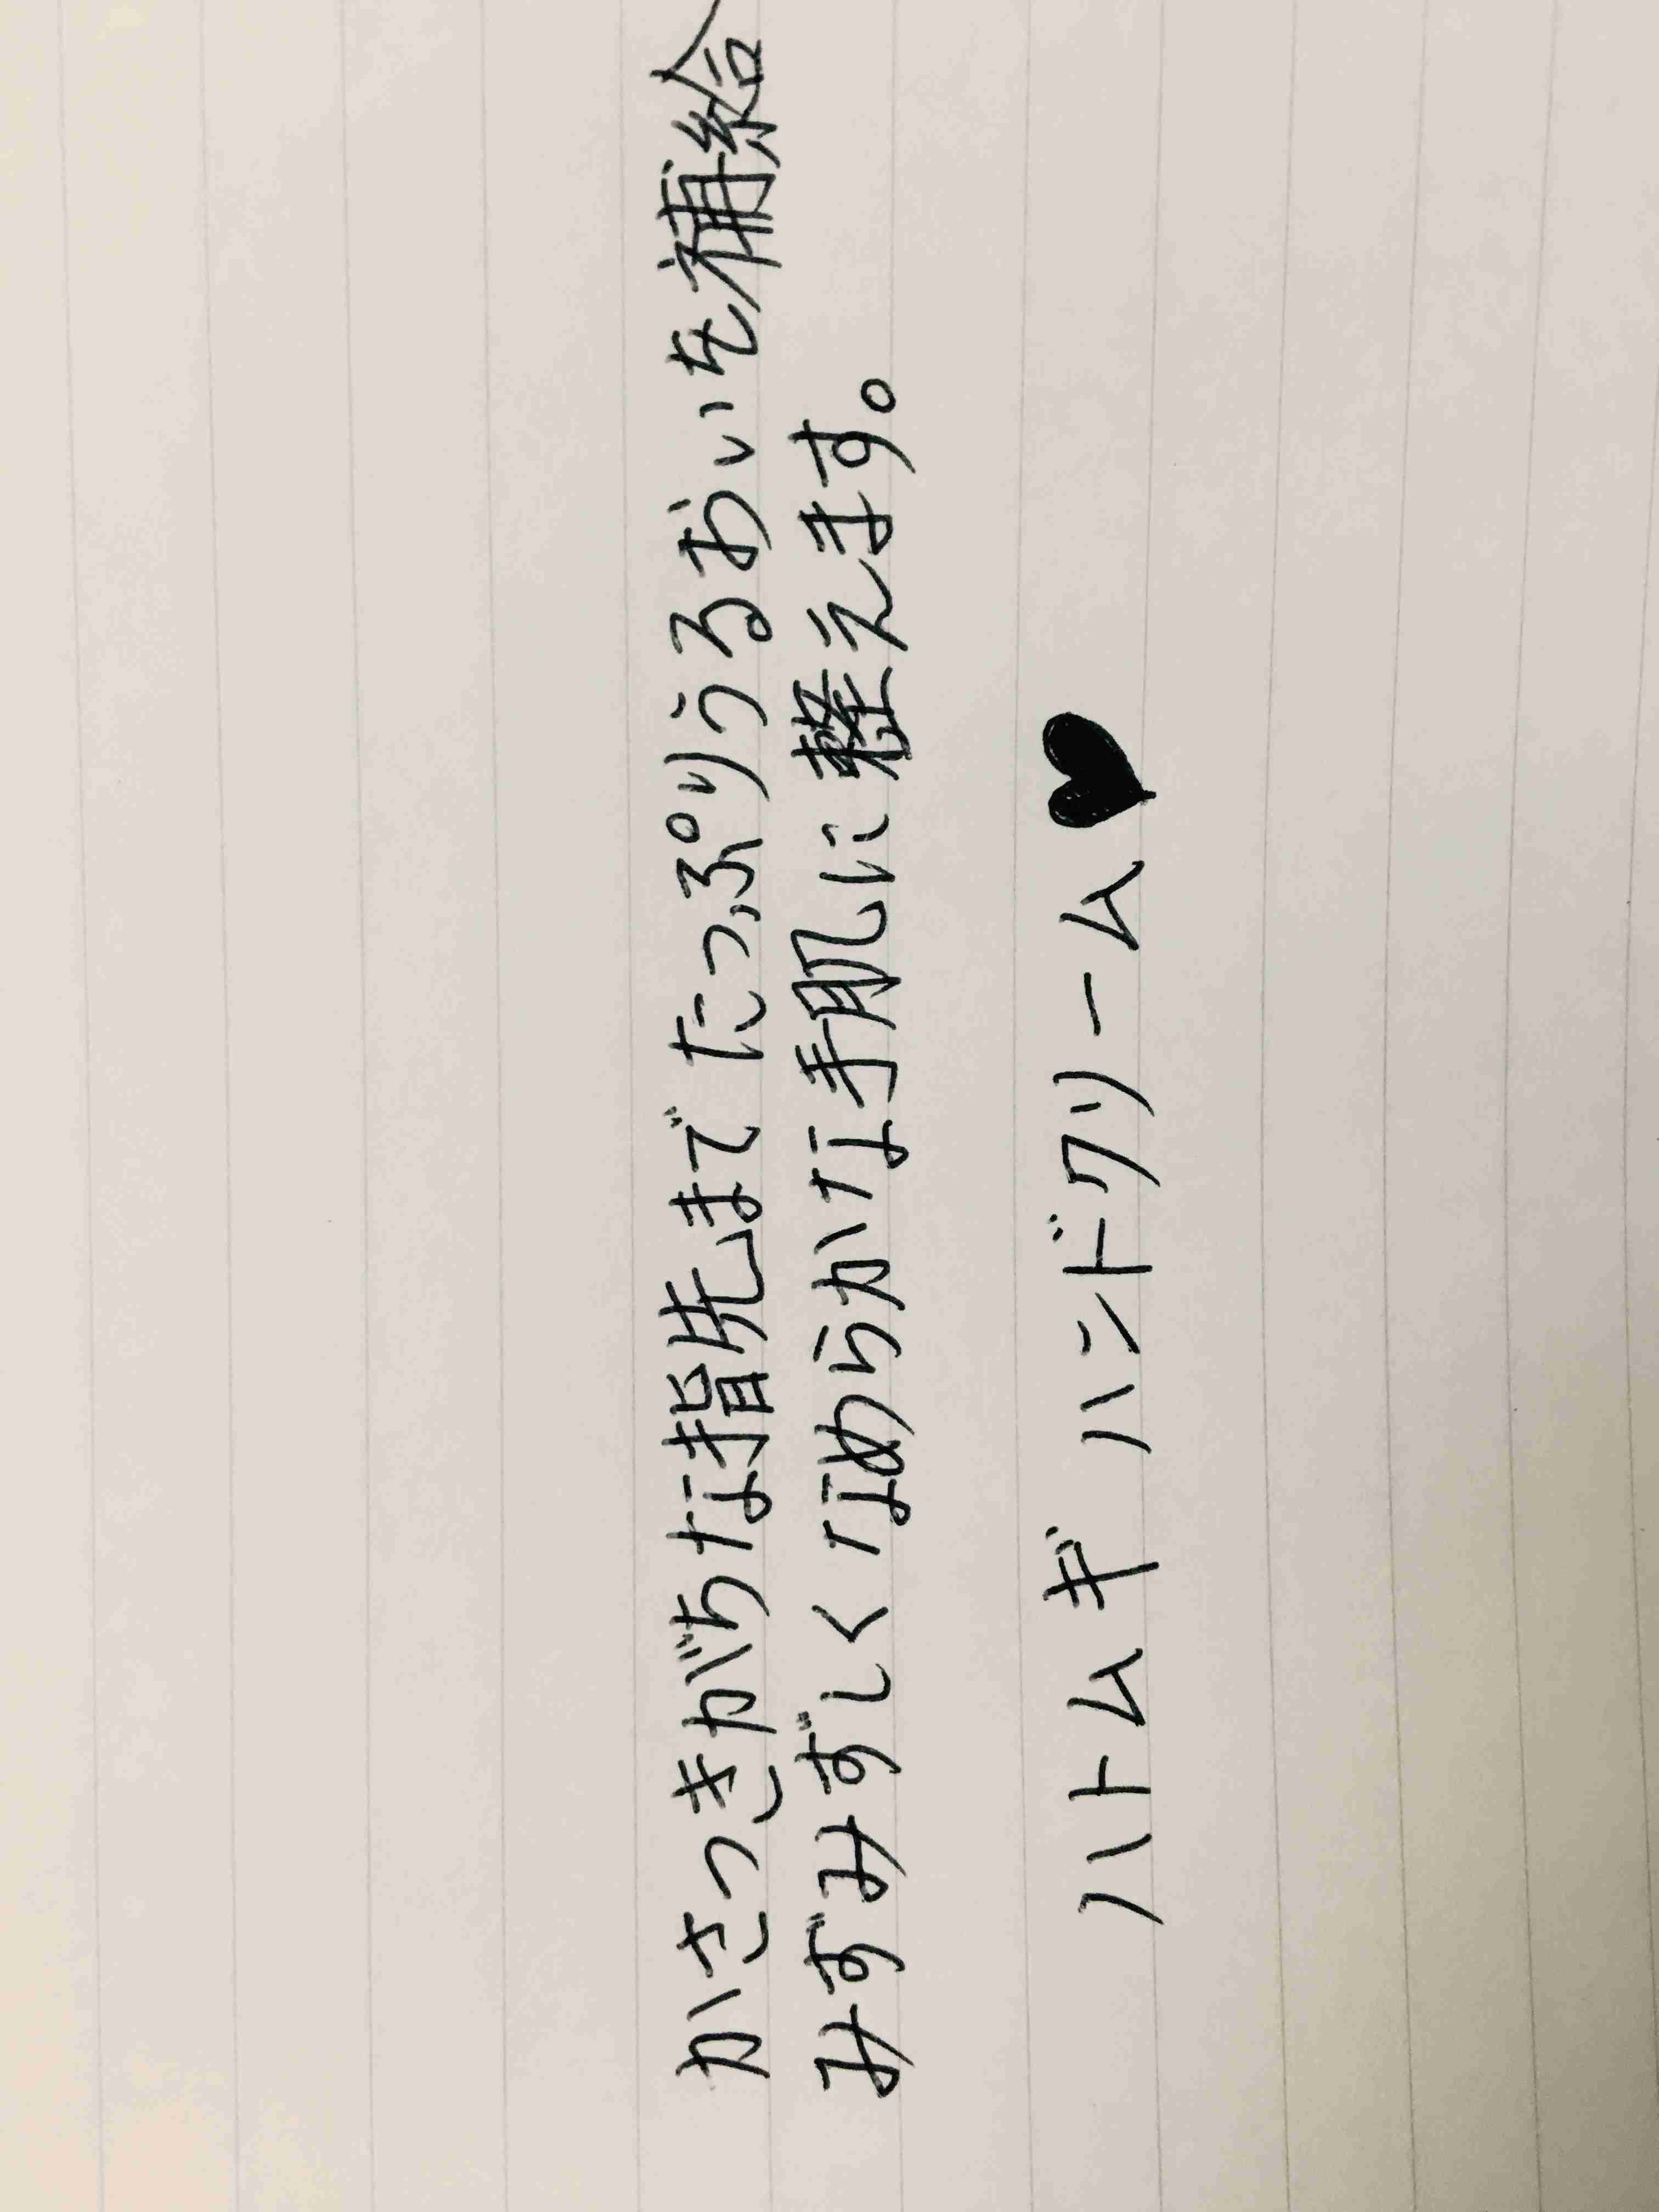 かさつきがちな指先までたっぷりうるおいを補給
みずみずしくなめらかな手肌に整えます。
ハトムギ ハンドクリーム♥